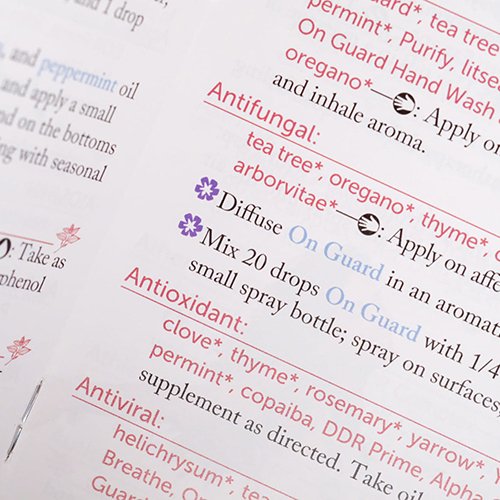 and 1 drop
and peppermint oil
and apply a small
nd on the bottoms
ng with seasonal
Take as
phenol
uard*, tea tree
permint*, Purify, litsea
On Guard Hand Wash
oregano*—: Apply on
and inhale aroma.
Antifungal:
tea tree*, oregano*, thyme*,
arborvitae*—: Apply on affe
Diffuse On Guard in an aromat
Mix 20 drops On Guard with 1/4
small spray bottle; spray on surfaces,
Antioxidant:
clove*, thyme*, rosemary*, yarrow*,
permint*, copaiba, DDR Prime, Alpha
supplement as directed. Take oil
Antiviral:
helichrysum*, tea
Breathe, On
Guard